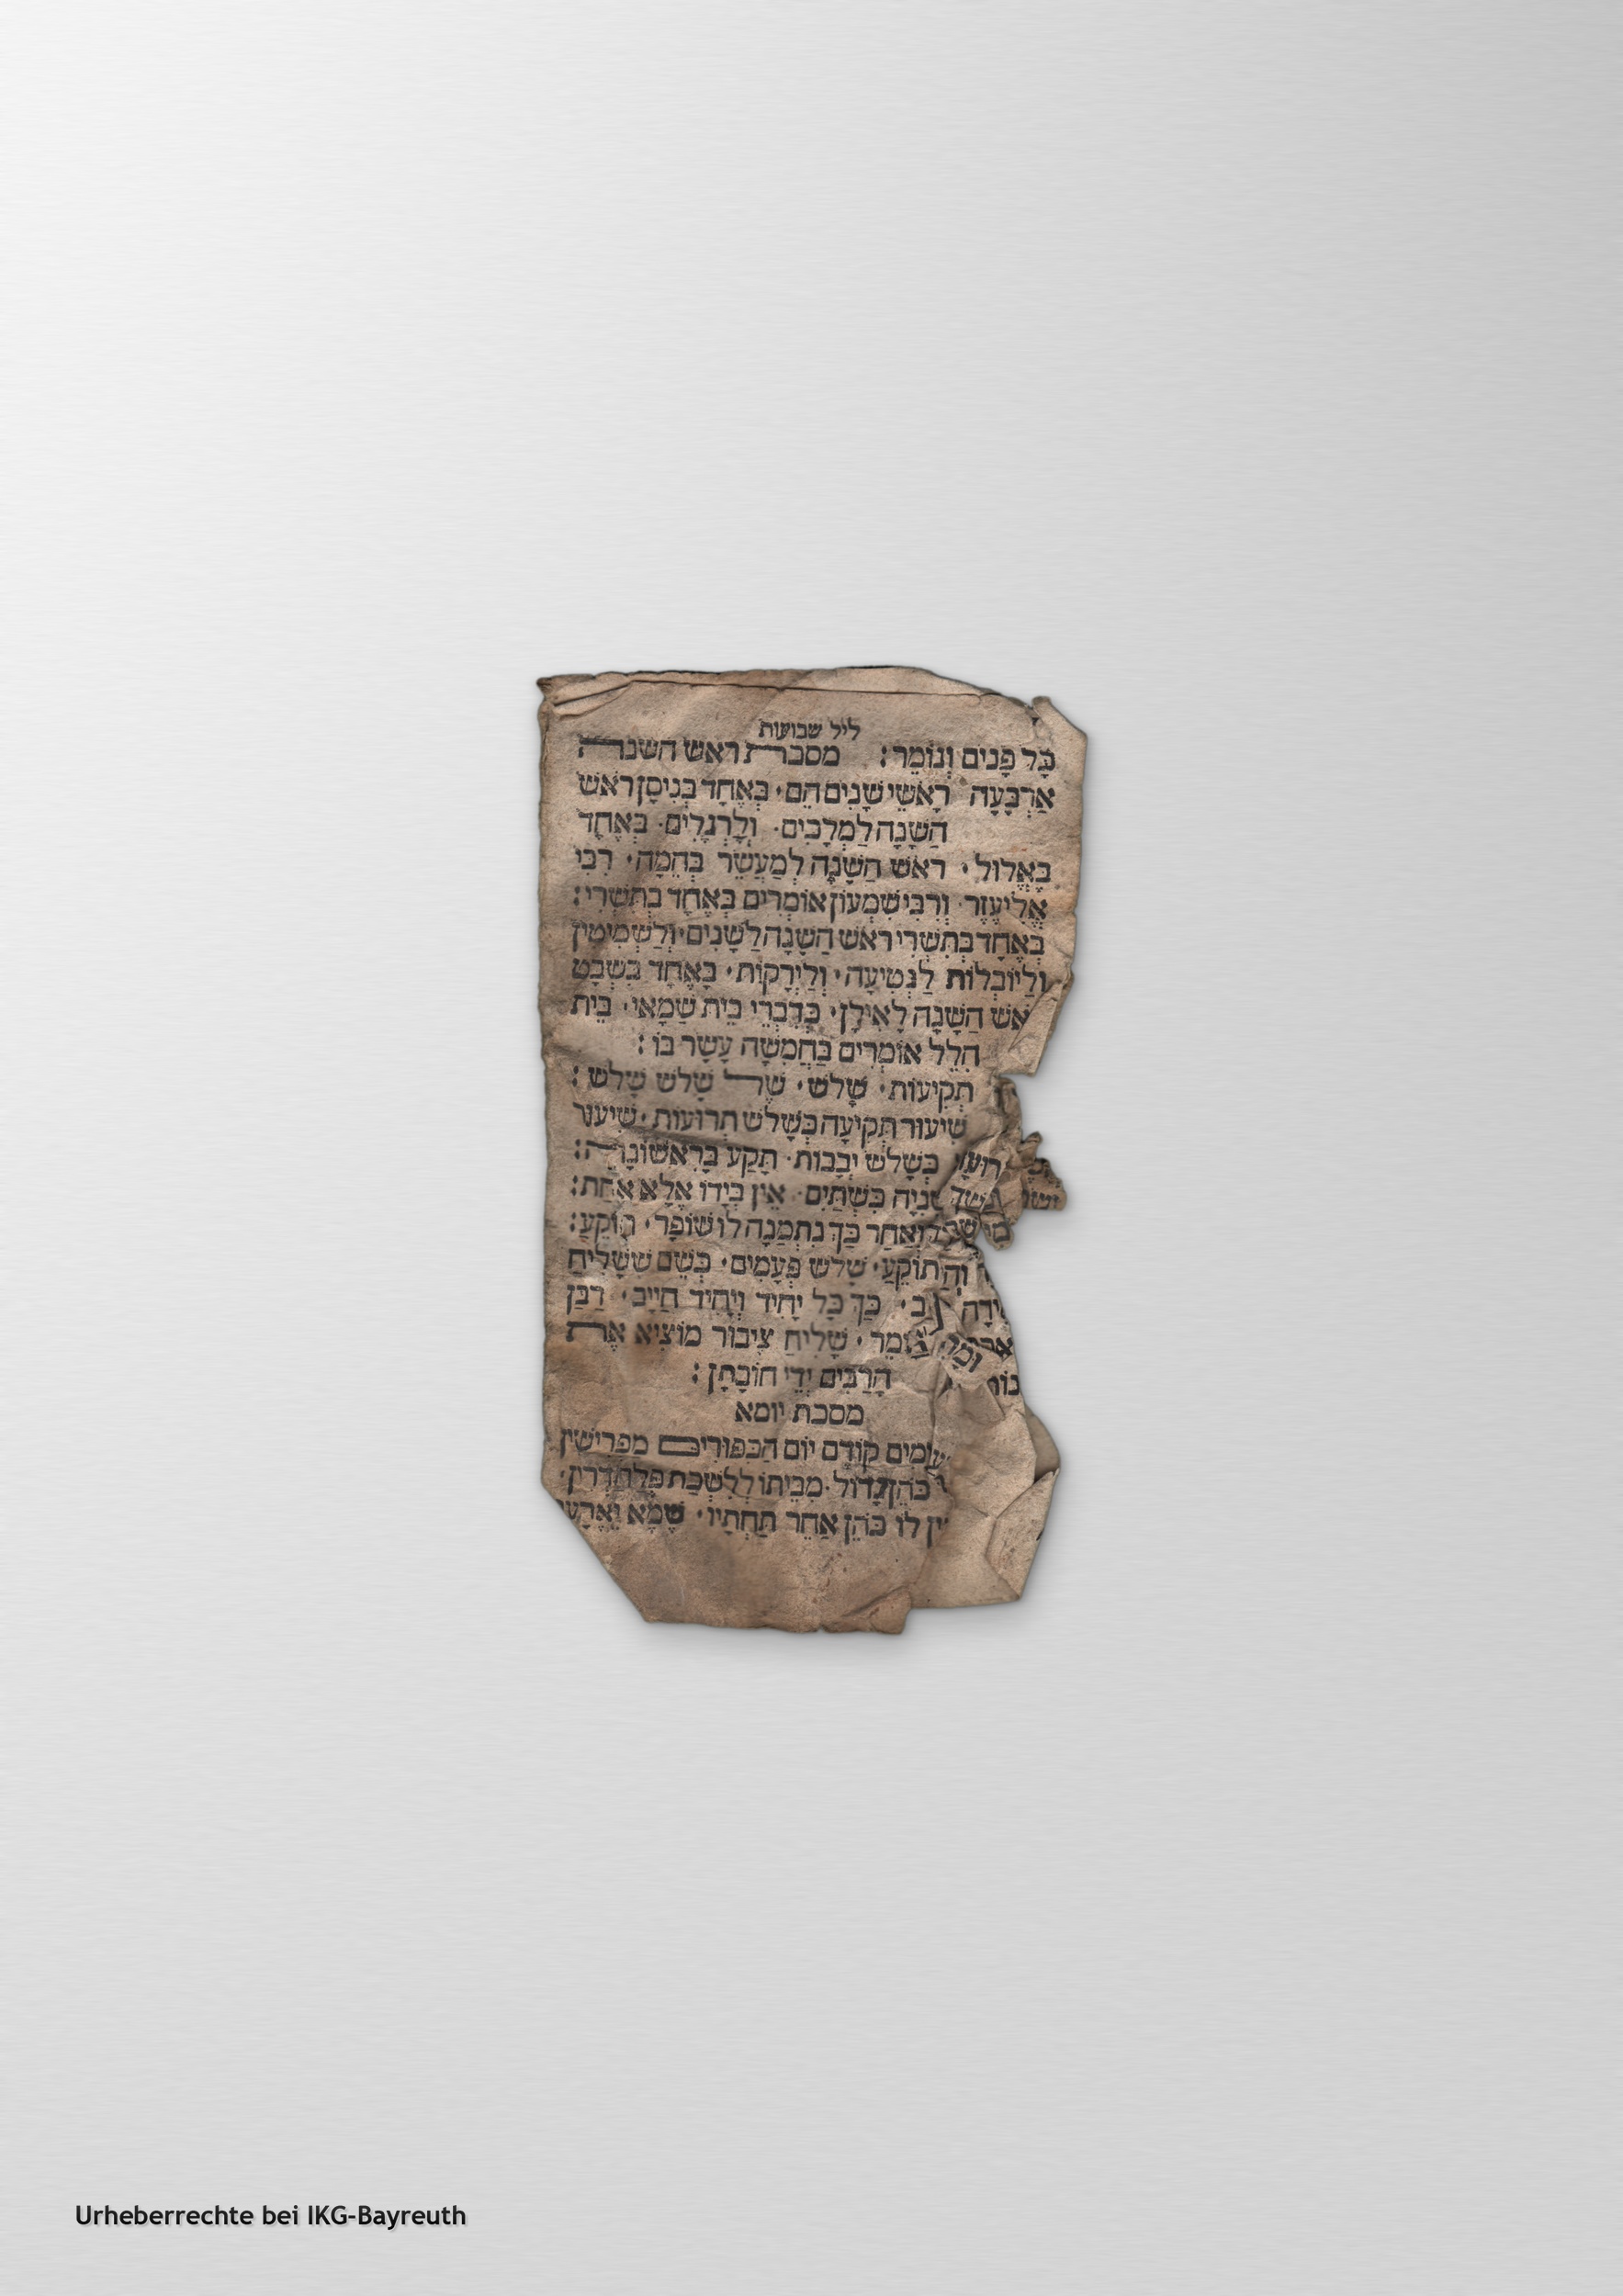 ליל שבועות
כָּל פָּנִים וְגוֹמֵר: מסכת ראש השנה
אַרְבָּעָה רָאשֵׁי שָׁנִים הֵם· בְּאֶחָד בְּנִיסָן רֹאשׁ
הַשָּׁנָה לַמְלָכִים· וְלָרְגָלִים· בְּאֶחָד
בֶּאֱלוּל· רֹאשׁ הַשָּׁנָה לְמַעֲשֵׂר בְּהֵמָה· רַבִּי
אֱלִיעֶזֶר· וְרַבִּי שִׁמְעוֹן אוֹמְרִים בְּאֶחָד בְּתִשְׁרֵי:
בְּאֶחָד בְּתִשְׁרֵי רֹאשׁ הַשָּׁנָה לַשָּׁנִים· וְלַשְׁמִיטִין
וְלַיוֹבְלוֹת לַנְּטִיעָה· וְלַיְרָקוֹת· בְּאֶחָד בִּשְׁבָט
אשׁ הַשָּׁנָה לָאִילָן· כְּדִבְרֵי בֵית שַׁמָּאי· בֵּית
הִלֵּל אוֹמְרִים בַּחֲמִשָּׁה עָשָׂר בּוֹ:
תְּקִיעוֹת· שָׁלֹשׁ· שֶׁל שָׁלֹשׁ שָׁלֹשׁ:
שִׁיעוּר תְּקִיעָה כְּשָׁלֹשׁ תְּרוּעוֹת· שִׁיעוּר
כְּשָׁלֹשׁ יְבָבוֹת· תָּקַע בָּרִאשׁוֹנָה:
שְׁנִיָּה כִּשְׁתַּיִם· אֵין בְּיָדוֹ אֶלָּא אַחַת:
וְאַחַר כָּךְ נִתְמַנָּה לוֹ שׁוֹפָר· תּוֹקֵעַ:
וְהַתּוֹקֵעַ· שָׁלֹשׁ פְּעָמִים· כְּשֵׁם שֶׁשְּׁלִיחַ
כָּךְ כָּל יָחִיד וְיָחִיד חַיָּיב· רַבָּן
שְׁלִיחַ צִיבּוּר מוֹצִיא אֶת
הָרַבִּים יְדֵי חוֹבָתָן:
מסכת יומא
יָמִים קוֹדֶם יוֹם הַכִּפּוּרִים מַפְרִישִׁין
כֹּהֵן גָּדוֹל· מִבֵּיתוֹ לְלִשְׁכַּת פַּלְהֶדְרִין·
ין לוֹ כֹּהֵן אַחֵר תַּחְתָּיו· שֶׁמָּא יֶאֱרַע
Urheberrechte bei IKG-Bayreuth